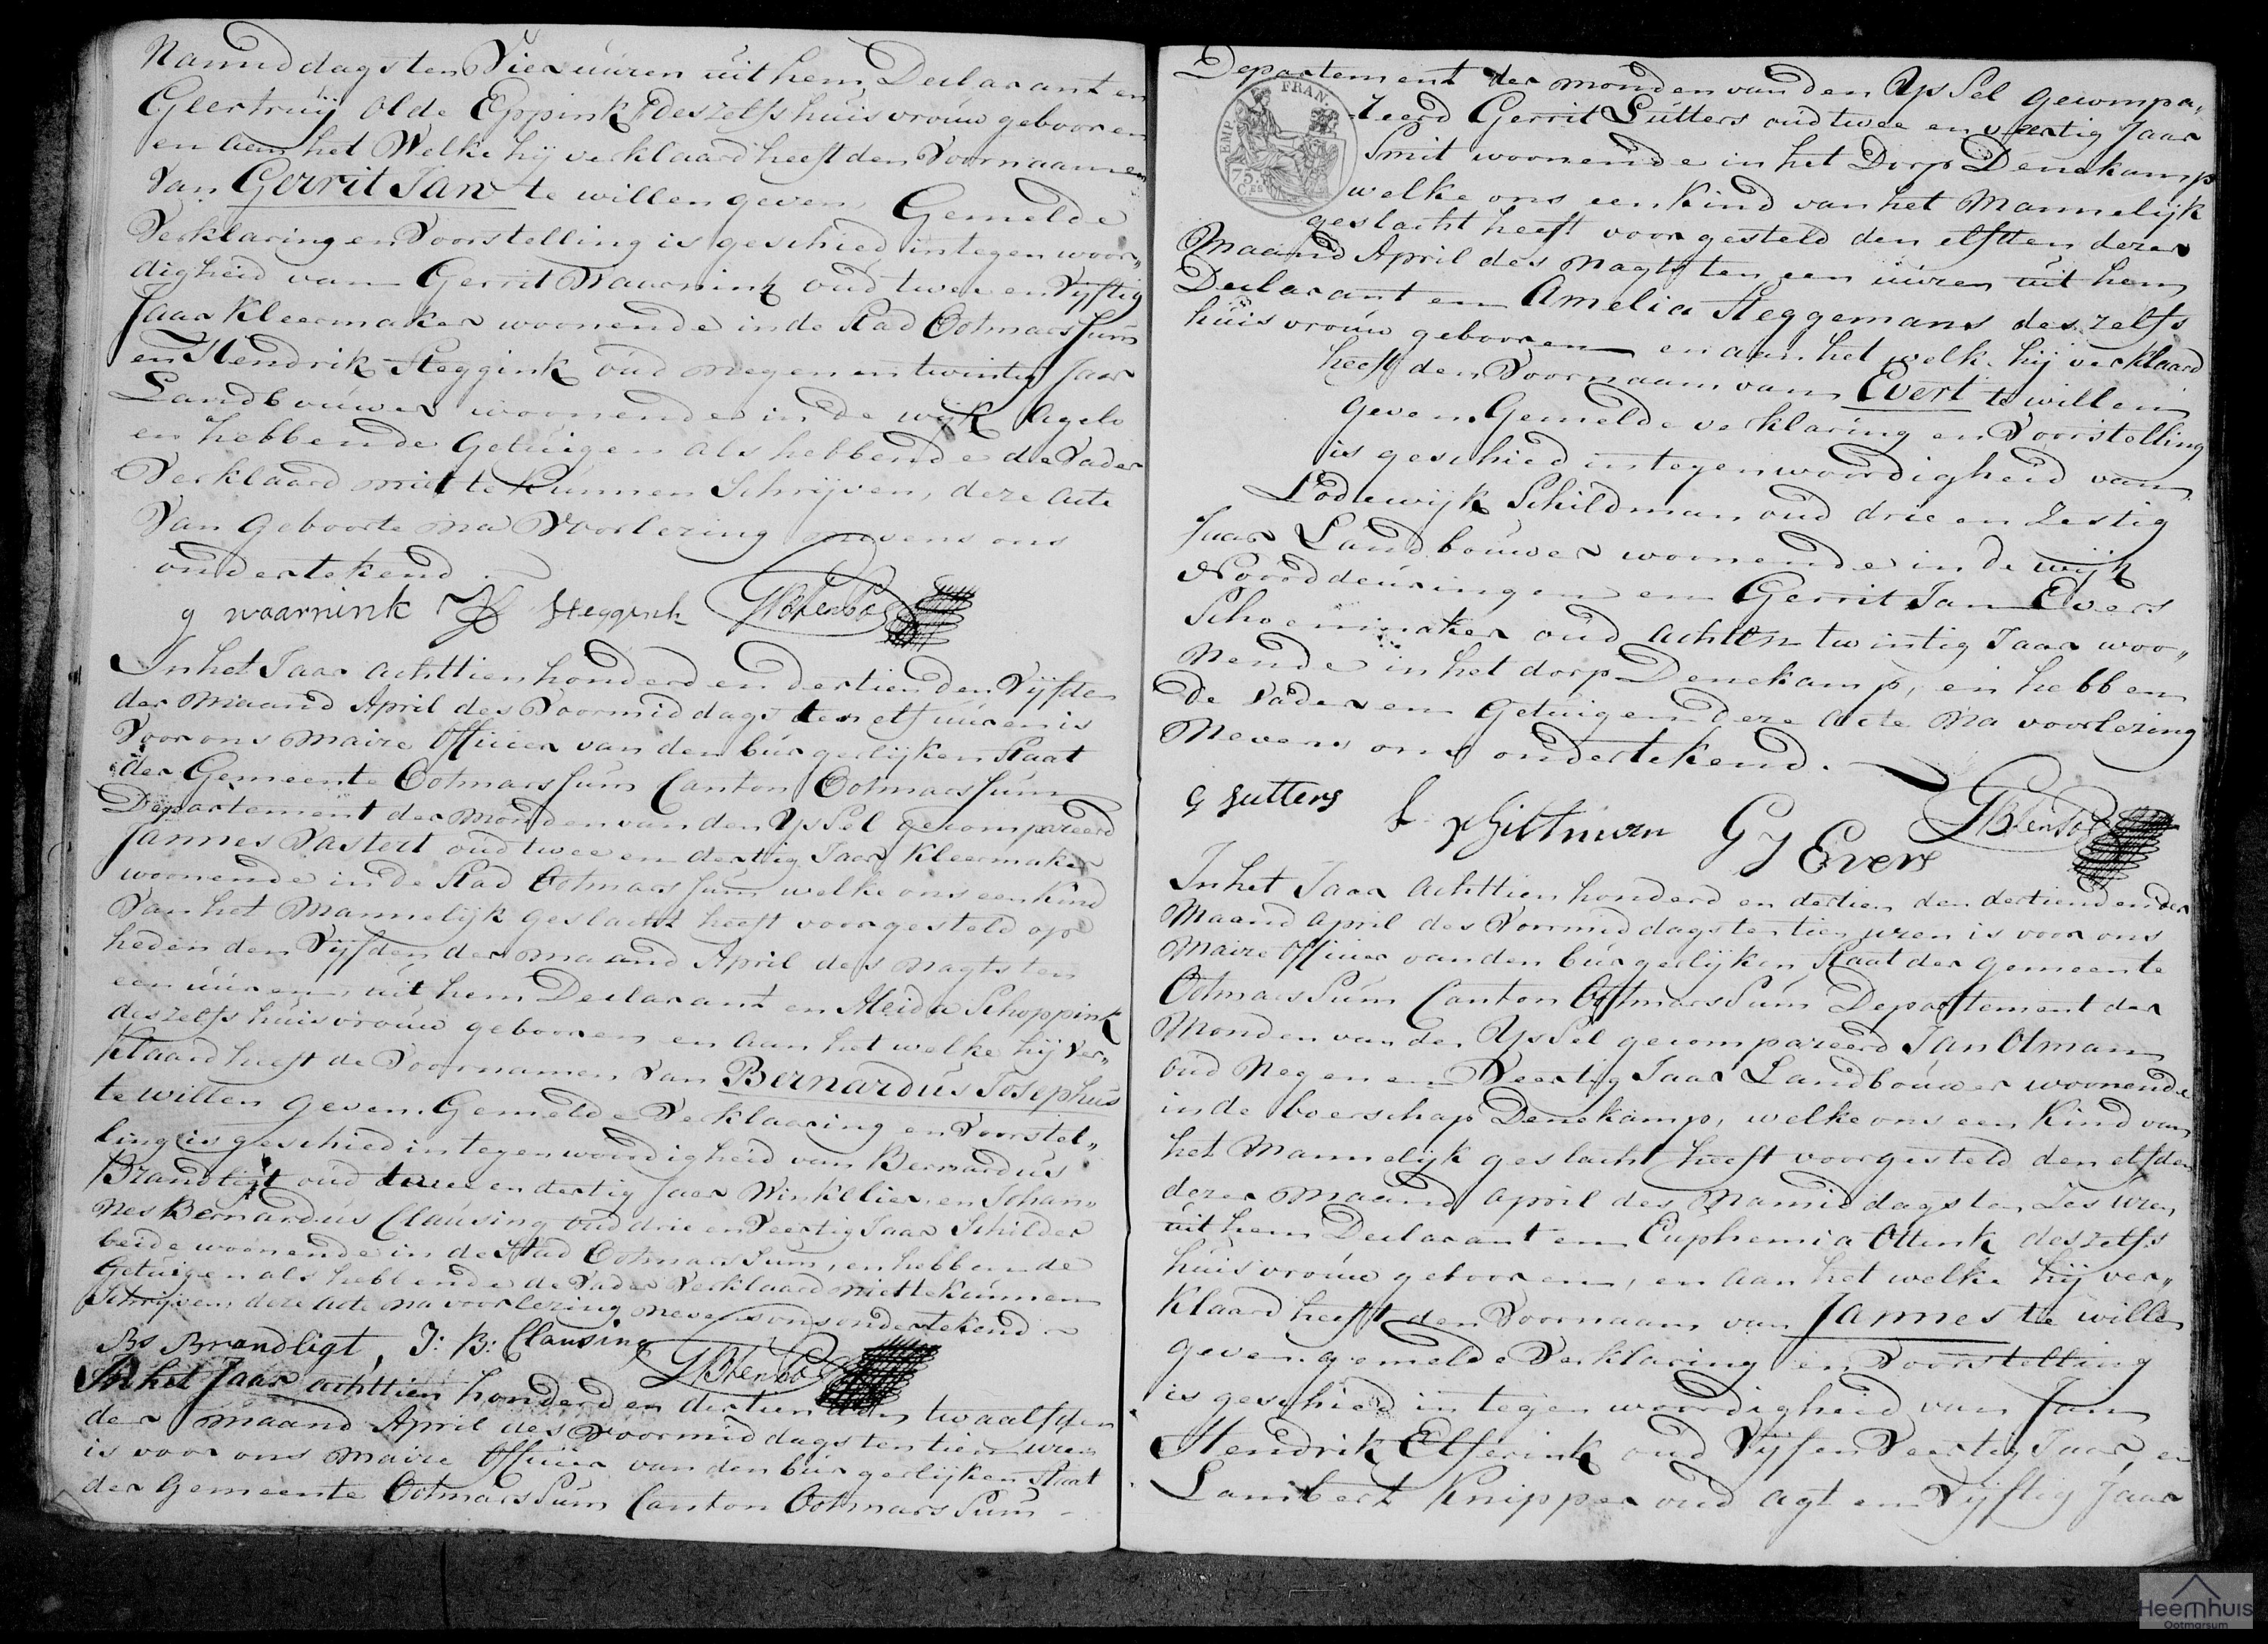 Namiddags ten Vier uuren uit hem Declarant en
Geertruij Olde Eppink deszelfs huisvrouw gebooren
en aan het Welke hij verklaard heeft den Voornaamen
Van Gerrit Jan te willen geven, Gemelde
Verklaring en Voorstelling is geschied in tegenwoor„
digheid van Gerrit Waarnink oud twee en Vyftig
Jaar Kleermaker woonende in de Stad Ootmarssum
en Hendrik Steggink oud negen en twintig Jaar
Landbouwer woonende in de wijk Agelo
en hebbende Getuigen als hebbende de Vader
Verklaard niet te kunnen Schrijven, deze Acte
Van Geboorte na Voorlezing nevens ons
ondertekend.
g waarnink H Steggink
In het Jaar achttienhonderd en dertien den Vijfden
der Maand April des Voormiddags ten elf uuren is
Voor ons Maire Officier van den burgerlijken Staat
der Gemeente Ootmarssum Canton Ootmarssum
Departement der Monden van den Yssel gecompareerd
Jannes Vastert oud twee en dertig Jaar Kleermaker
woonende in de Stad Ootmarssum welke ons een Kind
Van het Mannelijk geslacht heeft voorgesteld op
heden den Vijfden der maand April des nagts ten
een uuren, uit hem Declarant en Aleida Schoppink
deszelfs huisvrouw gebooren en aan het welke hij Ver„
klaard heeft de Voornamen Van Bernardus Josephus
te willen geven. Gemelde Verklaaring en Voorstel„
ling is geschied in tegenwoordigheid van Bernardus
Brandligt oud twee en dertig Jaar Winkelier en Johan„
nes Bernardus Clausing oud drie en Veertig Jaar Schilder
beide woonende in de Stad Ootmarssum, en hebben de
Getuigen als hebbende de Vader Verklaard niet te kunnen
Schrijven, deze Acte na voorlezing nevens ons ondertekend
Bs Brandligt, J: B: Clausing
In het Jaar achttien honderd en dertien den twaalfden
der maand April des Voormiddags ten tien uren
is voor ons Maire Officier van den burgerlijken Staat
der Gemeente Ootmarssum Canton Ootmarssum
Departement der monden van den Yssel gecompa„
EMP. FRAN.
75.
Ces
reerd Gerrit Lutters oud twee en veertig Jaar
Smit woonende in het Dorp Denekamp
welke ons een Kind van het Mannelijk
geslacht heeft voorgesteld den elften dezer
Maand April des Nagts ten een uuren uit hem
Declarant en Amelia Steggemans deszelfs
huisvrouw gebooren en aan het welk hij verklaard
heeft den Voornaam van Evert te willen
geven. Gemelde verklaring en Voorstelling
is geschied in tegenwoordigheid van
Lodewijk Schildman oud drie en Zestig
Jaar Landbouwer woonende in de wijk
Noorddeuringen en Gerrit Jan Evers
Schoenmaker oud achten twintig Jaar woo„
nende in het dorp Denekamp, en hebben
de Vader en Getuigen deze Acte na voorlezing
Nevens ons ondertekend.
G Lutters G J Evers
In het Jaar Achttienhonderd en dertien den dertienden der
Maand April des Voormiddags ten tien uren is voor ons
Maire Officier van den burgerlijken Staat der Gemeente
Ootmarssum Canton Ootmarssum Departement der
Monden van den Yssel gecompareerd Jan Olman
oud Negen en Veertig Jaar Landbouwer woonende
in de boerschap Denekamp, welke ons een Kind van
het Mannelijk geslacht heeft voorgesteld den elfden
dezer Maand April des Namiddags ten Zes uren
uit hem Declarant en Euphemia Ottink deszelfs
huisvrouw gebooren, en aan het welke hij ver„
klaard heeft den Voornaam van Jannes te willen
geven. gemelde Verklaring en Voorstelling
is geschied in tegenwoordigheid van Jan
Hendrik Elferink oud Vijf en Veertig Jaar, en
Lambert Knipper oud agt en Vijftig Jaar
Heemhuis
Ootmarsum